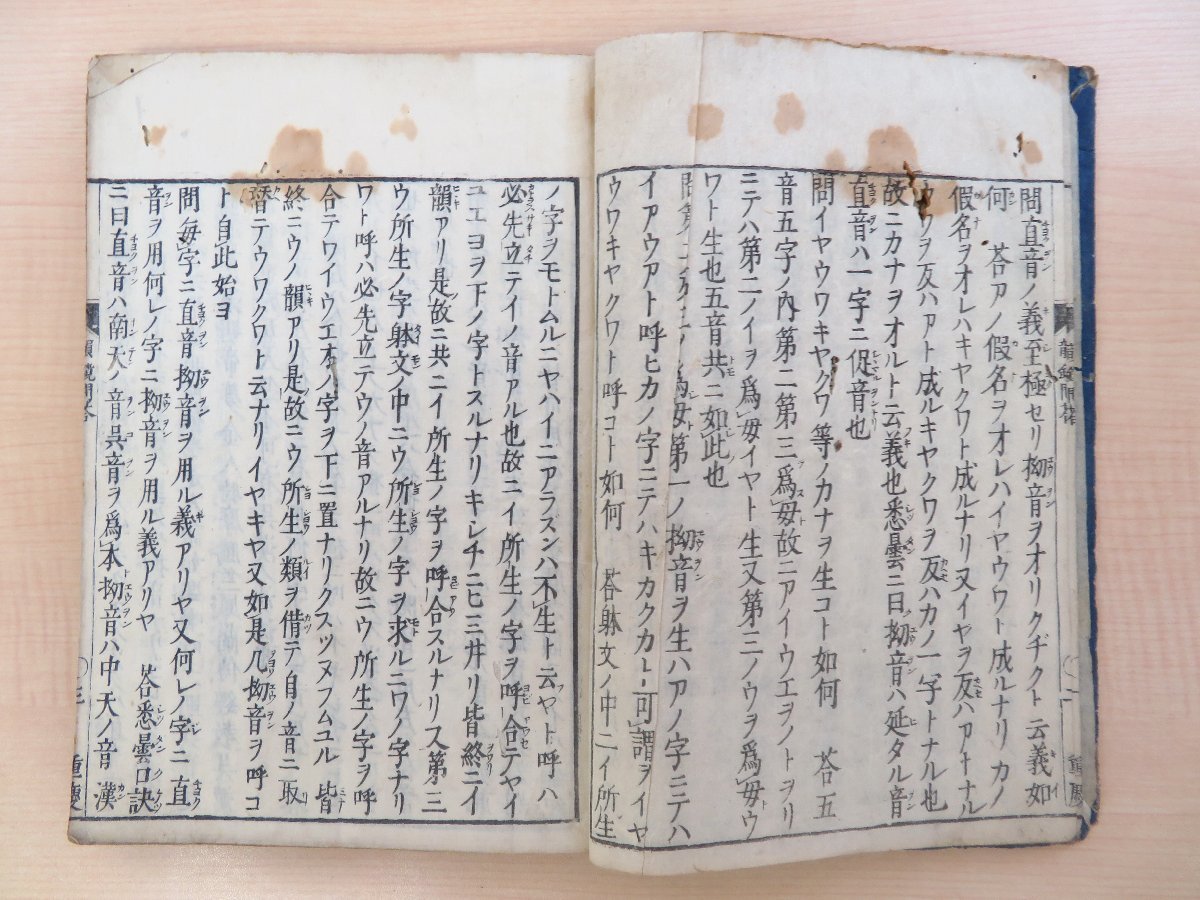 問直音ノ義至極セリ拗音ヲオリクヂクト云義如
何　荅アノ假名ヲオレハイヤウワト成ルナリカノ
假名ヲオレハキヤクワト成ルナリ又イヤヲ反ハアトナル
ウワヲ反ハアト成ルキヤクワヲ反ハカノ一字トナル也
故ニカナヲオルト云義也悉曇ニ曰拗音ハ延タル音
直音ハ一字ニ促音也
問イヤウワキヤクワ等ノカナヲ生コト如何　荅五
音五字ノ內第二第三爲毋故ニアイウエヲノトヲリ
ニテハ第二ノイヲ爲毋イヤト生又第三ノウヲ爲毋ウ
ワト生也五音共ニ如此也
爲毋第一ノ拗音ヲ生ハアノ字ニテハ
イアウアト呼ヒカノ字ニテハキカクカト可謂ヲイヤ
ウワキヤクワト呼コト如何　荅躰文ノ中ニイ所生
ノ字ヲモトムルニヤハイニアラズンハ不生ト云ヤト呼ハ
必先立テイノ音アル也故ニイ所生ノ字ヲ呼合テヤイ
ユエヨヲ下ノ字トスルナリキシチニヒミ井リ皆終ニイ
韻アリ是故ニ共ニイ所生ノ字ヲ呼合スルナリ又第三
ウ所生ノ字躰文ノ中ニウ所生ノ字ヲ求ルニワノ字ナリ
ワト呼ハ必先立テウノ音アルナリ故ニウ所生ノ字ヲ呼
合テワイウエオノ字ヲ下ニ置ナリクスツヌフムユル皆
終ニウノ韻アリ是故ニウ所生ノ類ヲ借テ自ノ音ニ取
替テウワクワト云ナリイヤキヤ又如是凡拗音ヲ呼コ
ト自此始ヨ
問毎字ニ直音拗音ヲ用ル義アリヤ又何レノ字ニ直
音ヲ用何レノ字ニ拗音ヲ用ル義アリヤ　荅悉曇口訣
ニ曰直音ハ南天ノ音具音ヲ爲本拗音ハ中天ノ音漢